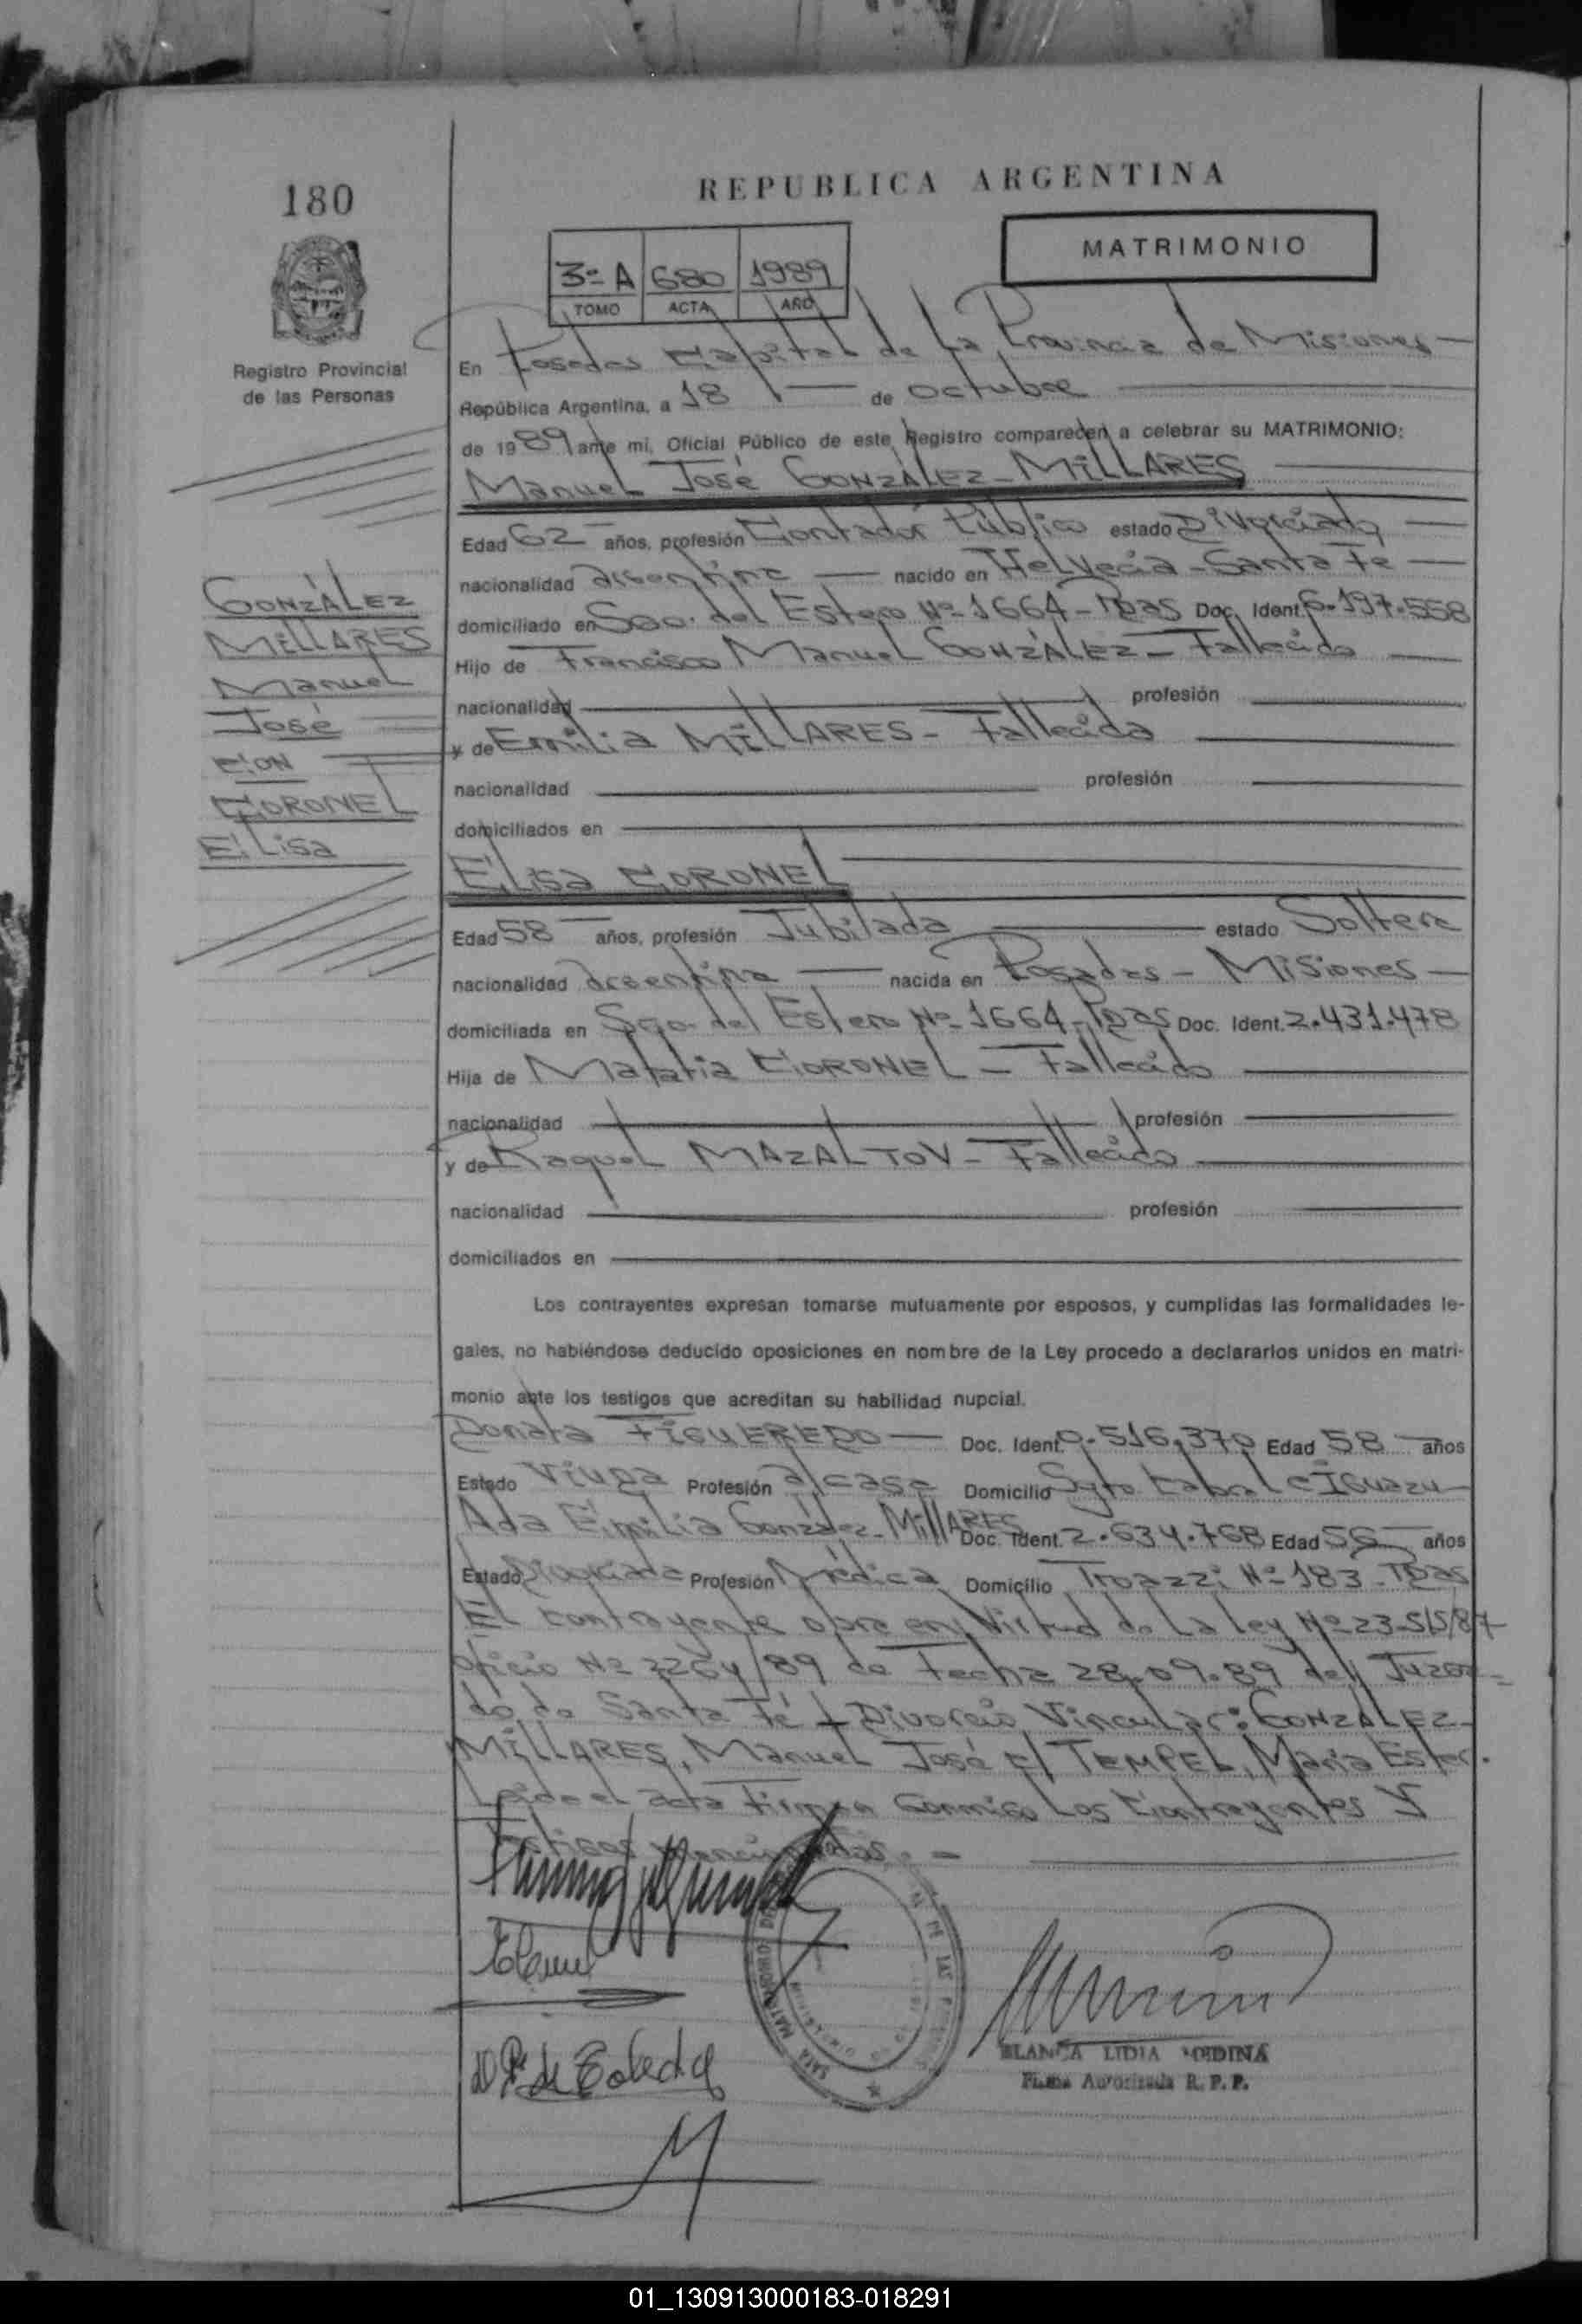 180
REPUBLICA ARGENTINA
MATRIMONIO
3º A 680 1989
TOMO ACTA AÑO
Registro Provincial
de las Personas
En Posadas Capital de La Provincia de Misiones
República Argentina, a 18 de octubre
de 1989 ante mi, Oficial Público de este Registro comparecen a celebrar su MATRIMONIO:
Manuel José GONZÁLEZ-MILLARES
Edad 62 años, profesión Contador Público estado Divorciado
nacionalidad argentina nacido en Helvecia - Santa Fe
domiciliado en Sgo. del Estero Nº 1664 - Pdas Doc. Ident. 6.197.558
Hijo de Francisco Manuel GONZÁLEZ - Fallecido
nacionalidad profesión
y de Emilia MILLARES - Fallecida
nacionalidad profesión
domiciliados en
GONZÁLEZ
MILLARES
Manuel
José
CON
CORONEL
Elisa
Elisa CORONEL
Edad 58 años, profesión Jubilada estado Soltera
nacionalidad argentina nacida en Posadas - Misiones
domiciliada en Sgo. del Estero Nº 1664 - Pdas Doc. Ident. 2.431.478
Hija de Matatia CORONEL - Fallecido
nacionalidad profesión
y de Raquel MAZALTOV - Fallecida
nacionalidad profesión
domiciliados en
Los contrayentes expresan tomarse mutuamente por esposos, y cumplidas las formalidades le-
gales, no habiéndose deducido oposiciones en nombre de la Ley procedo a declararlos unidos en matri-
monio ante los testigos que acreditan su habilidad nupcial.
Donata FIGUEREDO Doc. Ident. 0.516.370 Edad 58 años
Estado Viuda Profesión a/casa Domicilio Sgto Cabral e Iguazu
Ada Emilia González-MillARES Doc. Ident. 2.634.768 Edad 56 años
Estado Divorciada Profesión Médica Domicilio Troazzi Nº 183 - Pdas
El contrayente obra en Virtud de La Ley Nº 23.515/87
oficio Nº 2264/89 de Fecha 28.09.89 del Juzga-
do de Santa Fé Divorcio Vincular: GONZÁLEZ-
MILLARES, Manuel José c/ TEMPEL, María Ester.
Leída el acta Firman Conmigo Los Contrayentes Y
Testigos mencionados.
SALA MATRIMONIO
DE LAS
BLANCA LIDIA
Firma Autorizada R. P. P.
01_130913000183-018291